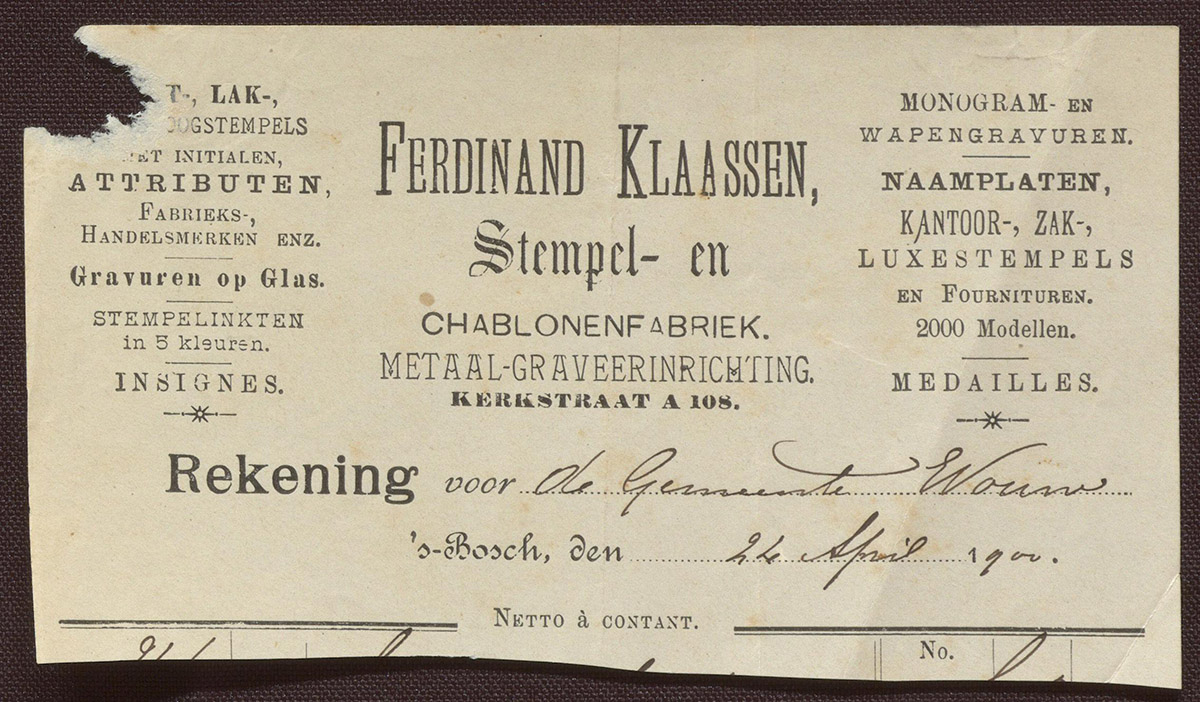 LAK-,
OOGSTEMPELS
MET INITIALEN,
ATTRIBUTEN,
FABRIEKS-,
HANDELSMERKEN ENZ.
Gravuren op Glas.
STEMPELINKTEN
in 5 kleuren.
INSIGNES.
FERDINAND KLAASSEN,
Stempel- en
CHABLONENFABRIEK.
METAAL-GRAVEERINRICHTING.
KERKSTRAAT A 108.
MONOGRAM- EN
WAPENGRAVUREN.
NAAMPLATEN,
KANTOOR-, ZAK-,
LUXESTEMPELS
EN FOURNITUREN.
2000 Modellen.
MEDAILLES.
Rekening voor de Gemeente Wouw
's-Bosch, den 24 April 1900.
NETTO à CONTANT.
No.